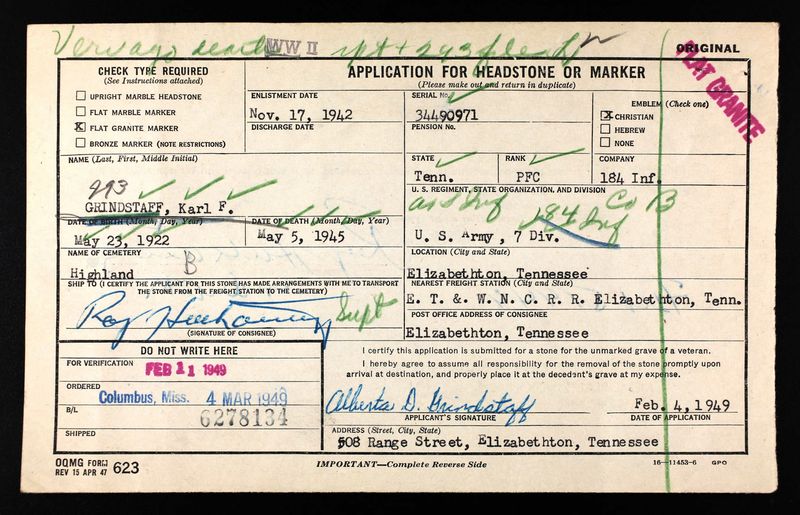 WW II
ORIGINAL
FLAT GRANITE
CHECK TYPE REQUIRED
(See Instructions attached)
UPRIGHT MARBLE HEADSTONE
FLAT MARBLE MARKER
X FLAT GRANITE MARKER
BRONZE MARKER (NOTE RESTRICTIONS)
APPLICATION FOR HEADSTONE OR MARKER
(Please make out and return in duplicate)
ENLISTMENT DATE
Nov. 17, 1942
DISCHARGE DATE
SERIAL No.
34490971
PENSION No.
EMBLEM (Check one)
X CHRISTIAN
HEBREW
NONE
NAME (Last, First, Middle Initial)
GRINDSTAFF, Karl F.
STATE
Tenn.
RANK
PFC
COMPANY
184 Inf.
U. S. REGIMENT, STATE ORGANIZATION, AND DIVISION
Co B
184 Inf
U. S. Army , 7 Div.
DATE OF BIRTH (Month, Day, Year)
May 23, 1922
DATE OF DEATH (Month, Day, Year)
May 5, 1945
NAME OF CEMETERY
Highland B
LOCATION (City and State)
Elizabethton, Tennessee
SHIP TO (I CERTIFY THE APPLICANT FOR THIS STONE HAS MADE ARRANGEMENTS WITH ME TO TRANSPORT
THE STONE FROM THE FREIGHT STATION TO THE CEMETERY)
Supt
(SIGNATURE OF CONSIGNEE)
NEAREST FREIGHT STATION (City and State)
E. T. &. W. N. C. R. R. Elizabethton, Tenn.
POST OFFICE ADDRESS OF CONSIGNEE
Elizabethton, Tennessee
DO NOT WRITE HERE
FOR VERIFICATION
FEB 11 1949
ORDERED
Columbus, Miss. 4 MAR 1949
B/L
6278134
SHIPPED
I certify this application is submitted for a stone for the unmarked grave of a veteran.
I hereby agree to assume all responsibility for the removal of the stone promptly upon
arrival at destination, and properly place it at the decedent's grave at my expense.
Alberta D. Grindstaff
APPLICANT'S SIGNATURE
Feb. 4, 1949
DATE OF APPLICATION
ADDRESS (Street, City, State)
508 Range Street, Elizabethton, Tennessee
OQMG FORM
REV 15 APR 47 623
IMPORTANT—Complete Reverse Side
16—11453-6 GPO